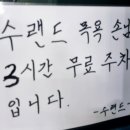 수랜드 목욕 손님
3시간 무료 주차
입니다.
-수랜드-